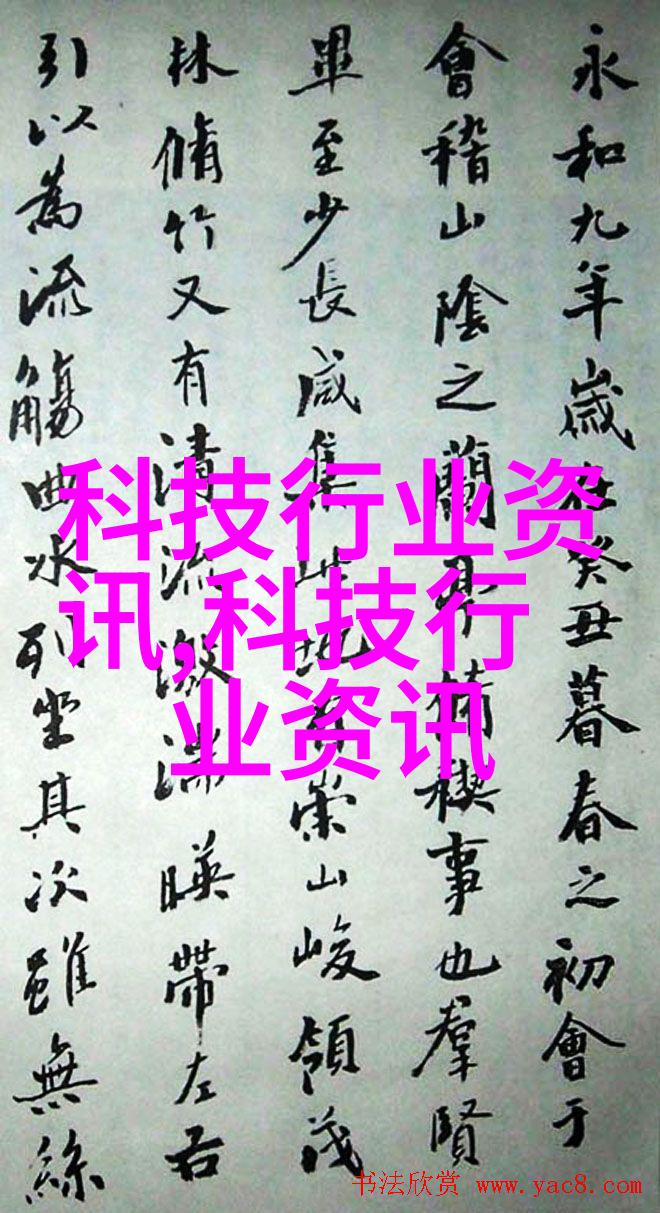 永和九年歲在癸丑暮春之初會于
會稽山陰之蘭亭脩禊事也羣賢
畢至少長咸集此地有崇山峻領茂
林脩竹又有清流激湍暎帶左右
引以為流觴曲水列坐其次雖無絲
科技行业资
讯,科技行
业资讯
书法欣赏 www.yac8.com